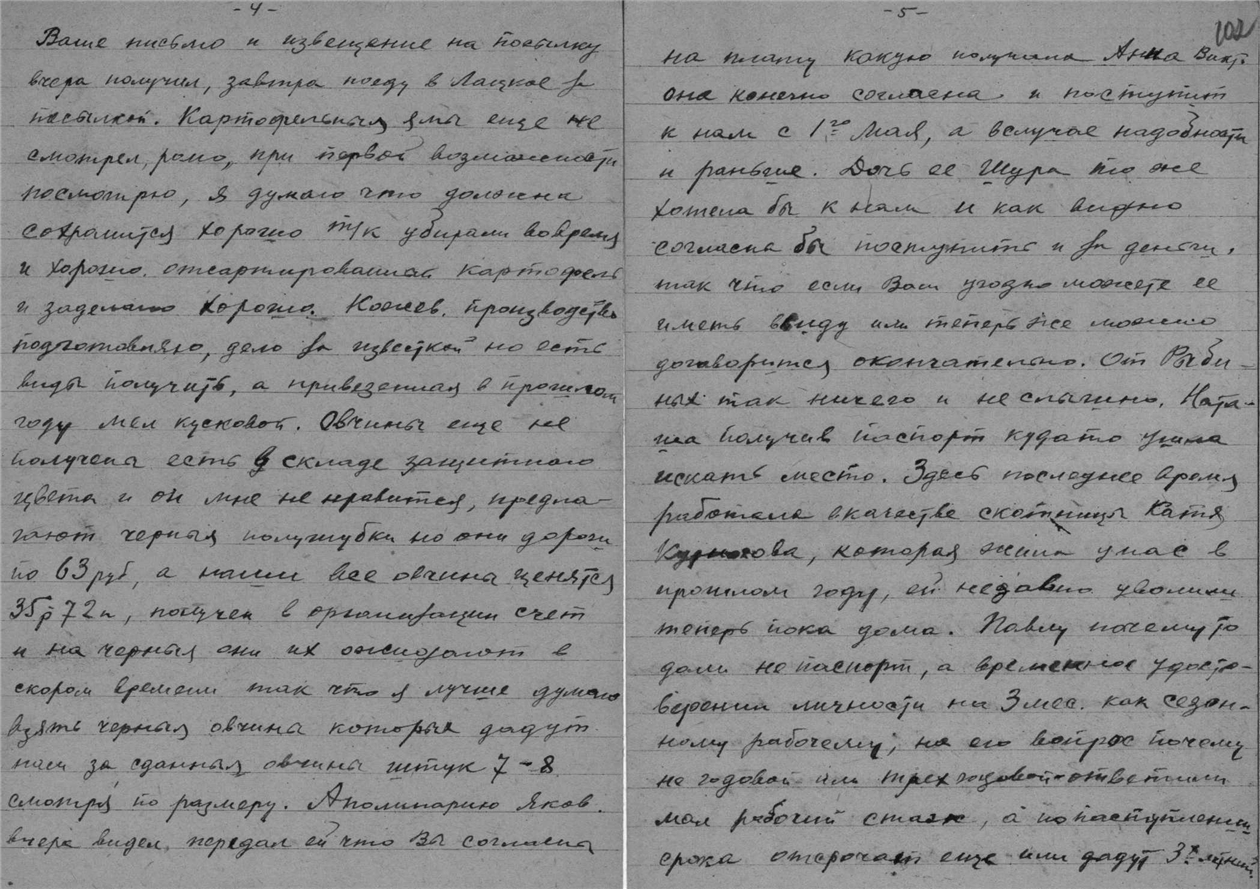 - 4 -
Ваше письмо и извещение на посылку
вчера получил, завтра поеду в Лацкое за
посылкой. Картофельныя ямы еще не
смотрел, рано, при первой возможности
посмотрю, я думаю что должна
сохранится хорошо т/к убирали вовремя
и хорошо отсартированная картофель
и заделано хорошо. Кожев. производство
подготовляю, дело за известкой но есть
виды получить, а привезенная в прошлом
году мел кусковой. Овчины еще не
получена есть в складе защитного
цвета и он мне не нравится, предла-
гают черныя полушубки но они дороги
по 63 руб, а наши все овчина ценятся
35 р 72 к, получен в организации счет
и на черныя они их ожидают в
скором времени так что я лучше думаю
взять черныя овчина которые дадут
нам за сданныя овчины штук 7-8
смотря по размеру. Аполинарию Яков.
вчера видел, передал ей что Вы согласна
- 5 -
102
на плату какую получала Анна Викт.
она конечно согласна и поступит
к нам с 1го Мая, а вслучае надобности
и раньше. Дочь ее Шура то же
хотела бы к нам и как видно
согласна бы поступить и за деньги,
так что если Вам угодно можете ее
иметь ввиду или теперь же можно
договорится окончательно. От Рыби-
ных так ничего и не слышно, Ната-
ша получив паспорт кудато ушла
искать место. Здесь последнее время
работала вкачестве скотницы Катя
которая жила унас в
прошлом году, ей недавно уволили
теперь пока дома. Павлу почемуто
дали не паспорт, а временное удосто-
верении личности на 3 мес. как сезон-
ному рабочему, на его вопрос почему
не годовой или трехгодовой-ответили
мал рабочий стаж, а по наступлении
срока отсрочат еще или дадут 3х летний.